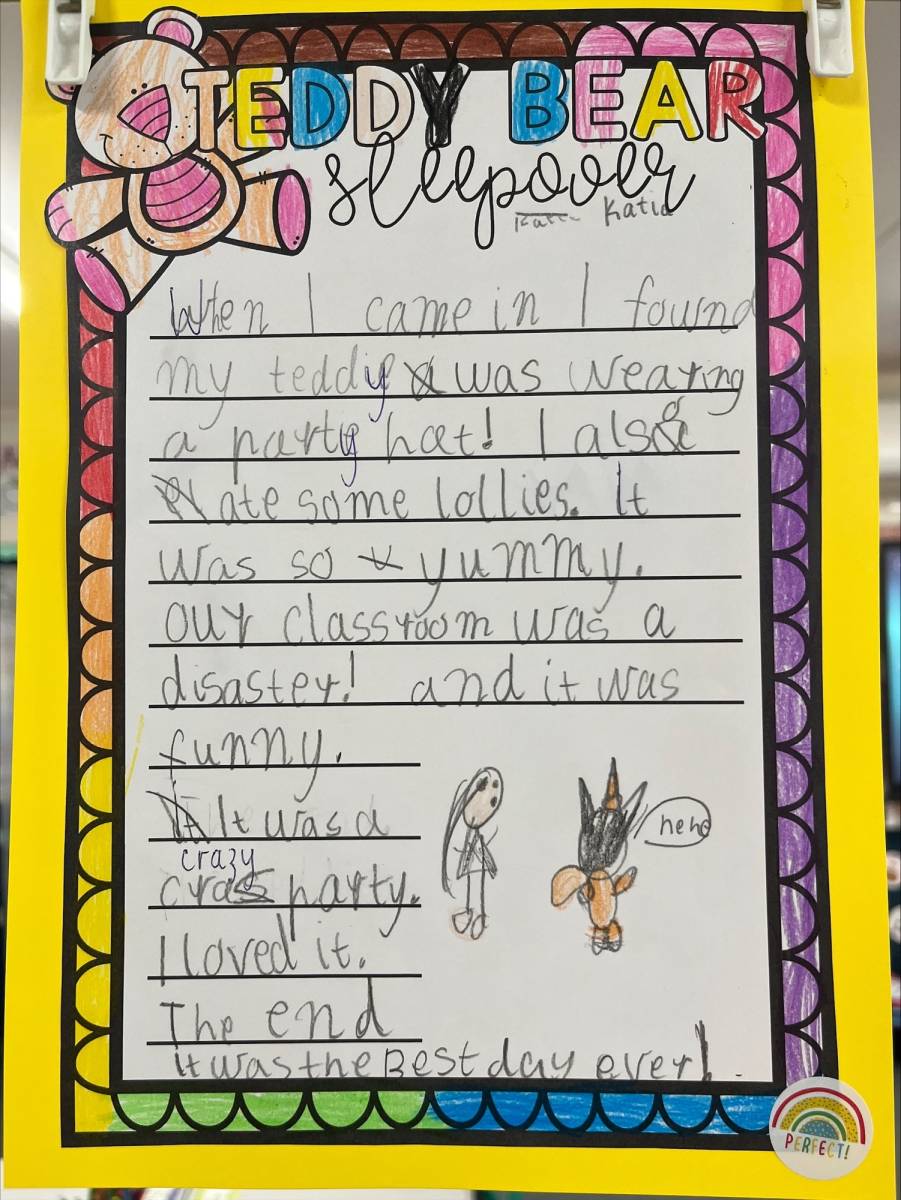 TEDDY BEAR
sleepover
Katia
When I came in I found
my teddy was wearing
a party hat! I also
ate some lollies. It
was so yummy.
our classroom was a
disaster! and it was
funny.
It was a
crazy
party.
I loved it.
The end
It was the Best day ever!
hehe
PERFECT!